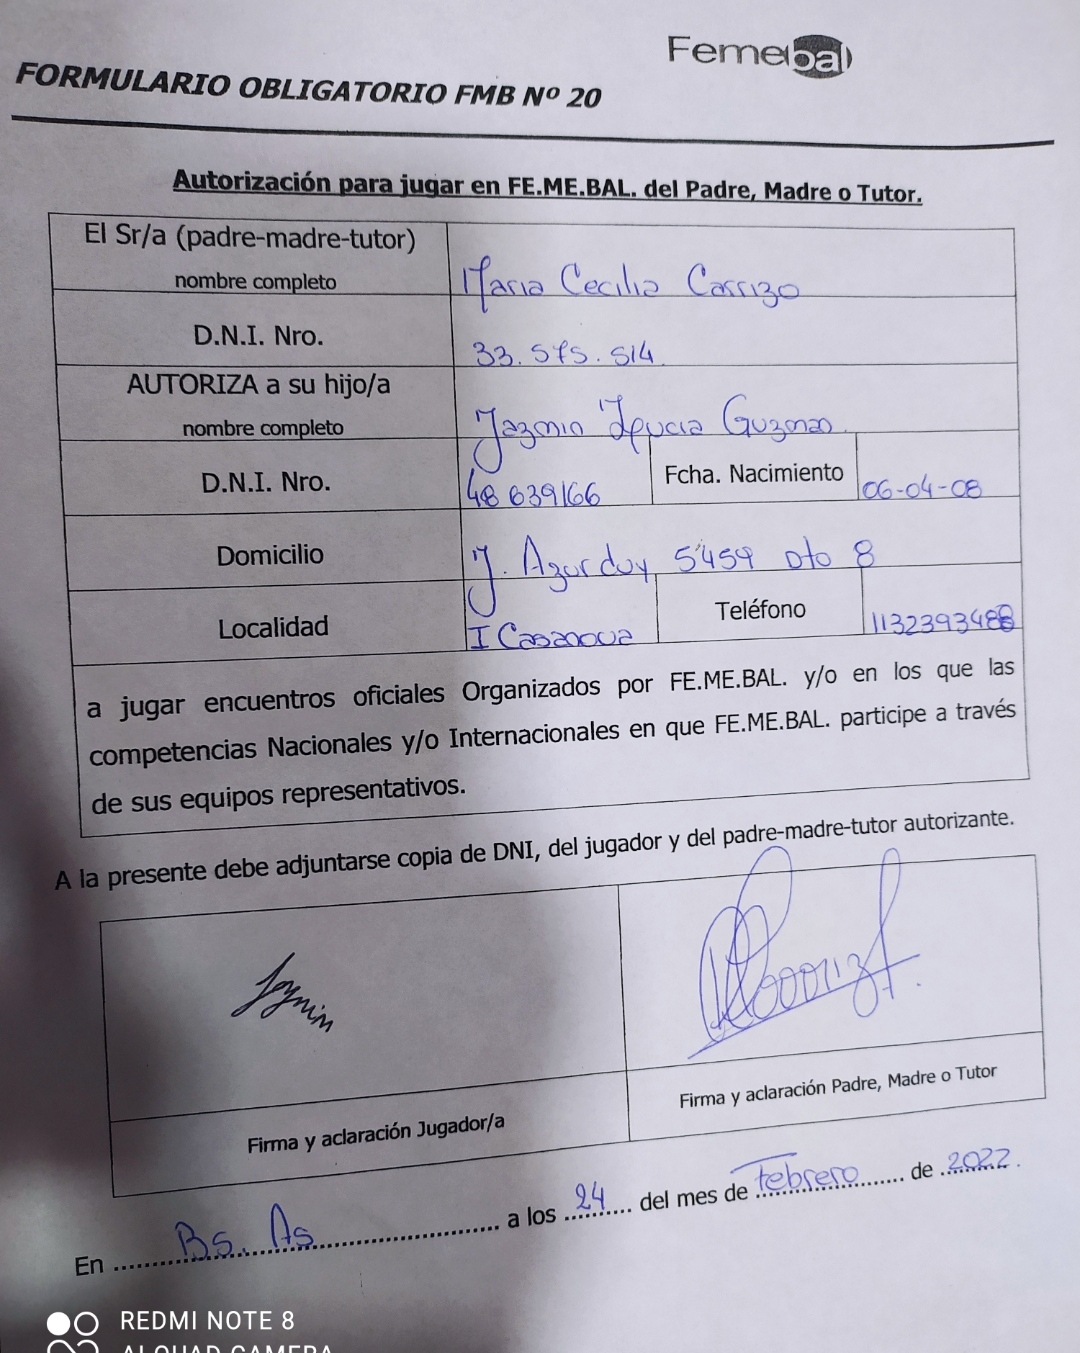 Femebal
FORMULARIO OBLIGATORIO FMB Nº 20
Autorización para jugar en FE.ME.BAL. del Padre, Madre o Tutor.
El Sr/a (padre-madre-tutor)
nombre completo
Maria Cecilia Carrizo
D.N.I. Nro.
33.575.514
AUTORIZA a su hijo/a
nombre completo
Jazmin Lucia Guzman
D.N.I. Nro.
48 639166
Fcha. Nacimiento
06-04-08
Domicilio
J. Azurduy 5459 dto 8
Localidad
I Casanova
Teléfono
a jugar encuentros oficiales Organizados por FE.ME.BAL. y/o en los que las
competencias Nacionales y/o Internacionales en que FE.ME.BAL. participe a través
de sus equipos representativos.
A la presente debe adjuntarse copia de DNI, del jugador y del padre-madre-tutor autorizante.
Jazmin
Firma y aclaración Jugador/a
Firma y aclaración Padre, Madre o Tutor
En Bs. As a los 24 del mes de Febrero de 2022.
REDMI NOTE 8
AI QUAD CAMERA